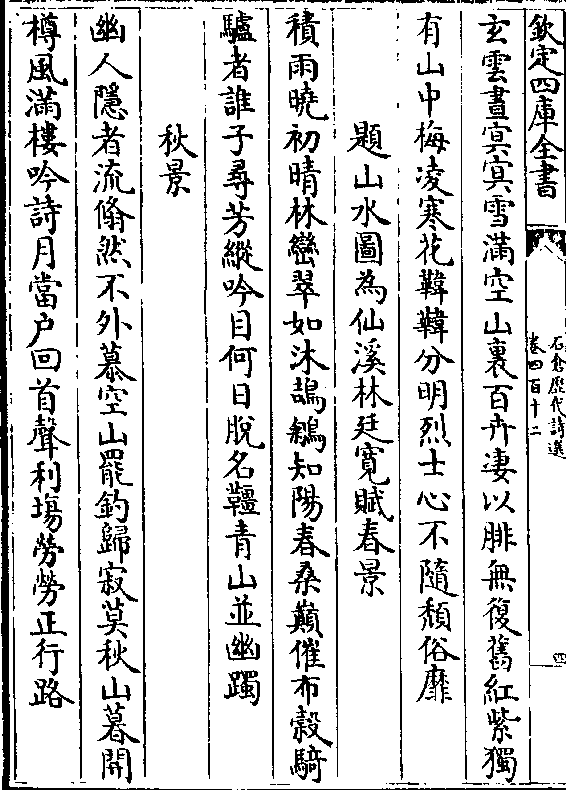 欽定四庫全書
石倉歷代詩選
卷四百十二
四
玄雲晝㝠㝠雪滿空山裏百卉凄以腓無復舊紅紫獨
有山中梅凌寒花韡韡分明烈士心不隨頽俗靡
題山水圖為仙溪林廷寛賦春景
積雨曉初晴林巒翠如沐鴶鵴知陽春桑巔催布穀騎
驢者誰子尋芳縱吟目何日脫名韁青山並幽躅
秋景
幽人隱者流翛然不外慕空山罷釣歸寂莫秋山暮開
樽風滿樓吟詩月當户回首聲利塲勞勞正行路